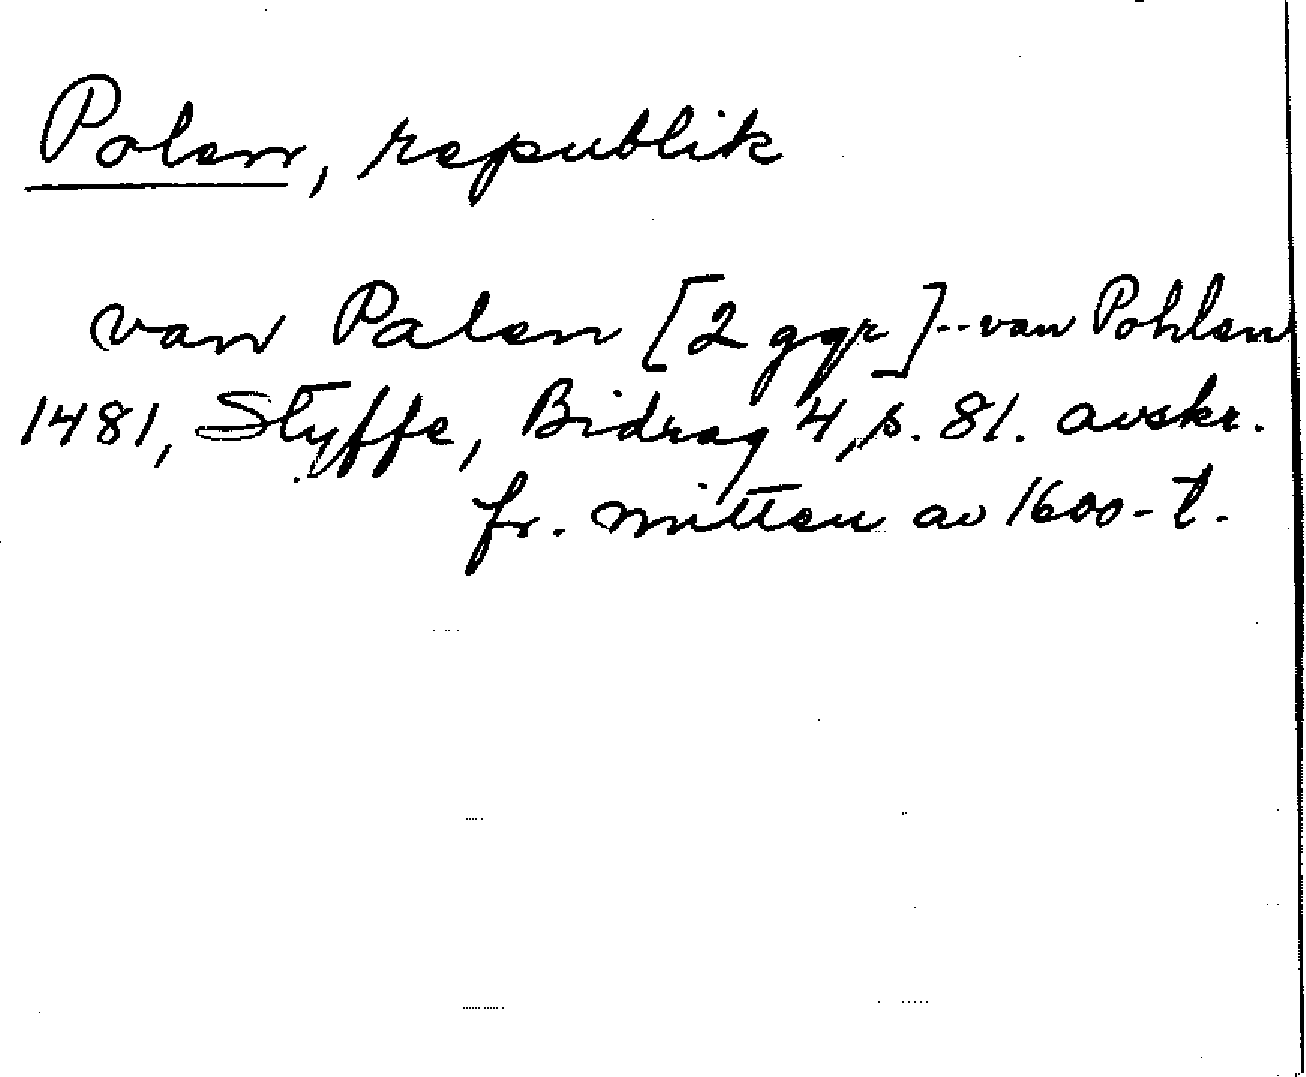 Polen, republik
van Palen [2 ggr]--van Pohlen
1481, Styffe, Bidrag 4, s. 81. avskr.
fr. mitten av 1600-t.